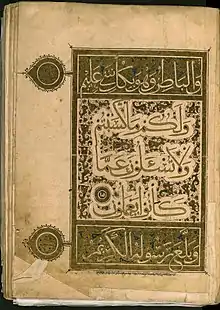 والباطن وهو بكل شيء عليم
ولكم ما كسبتم
ولا تسألون عما
كانوا يعملون
وبلغ رسوله الكريم